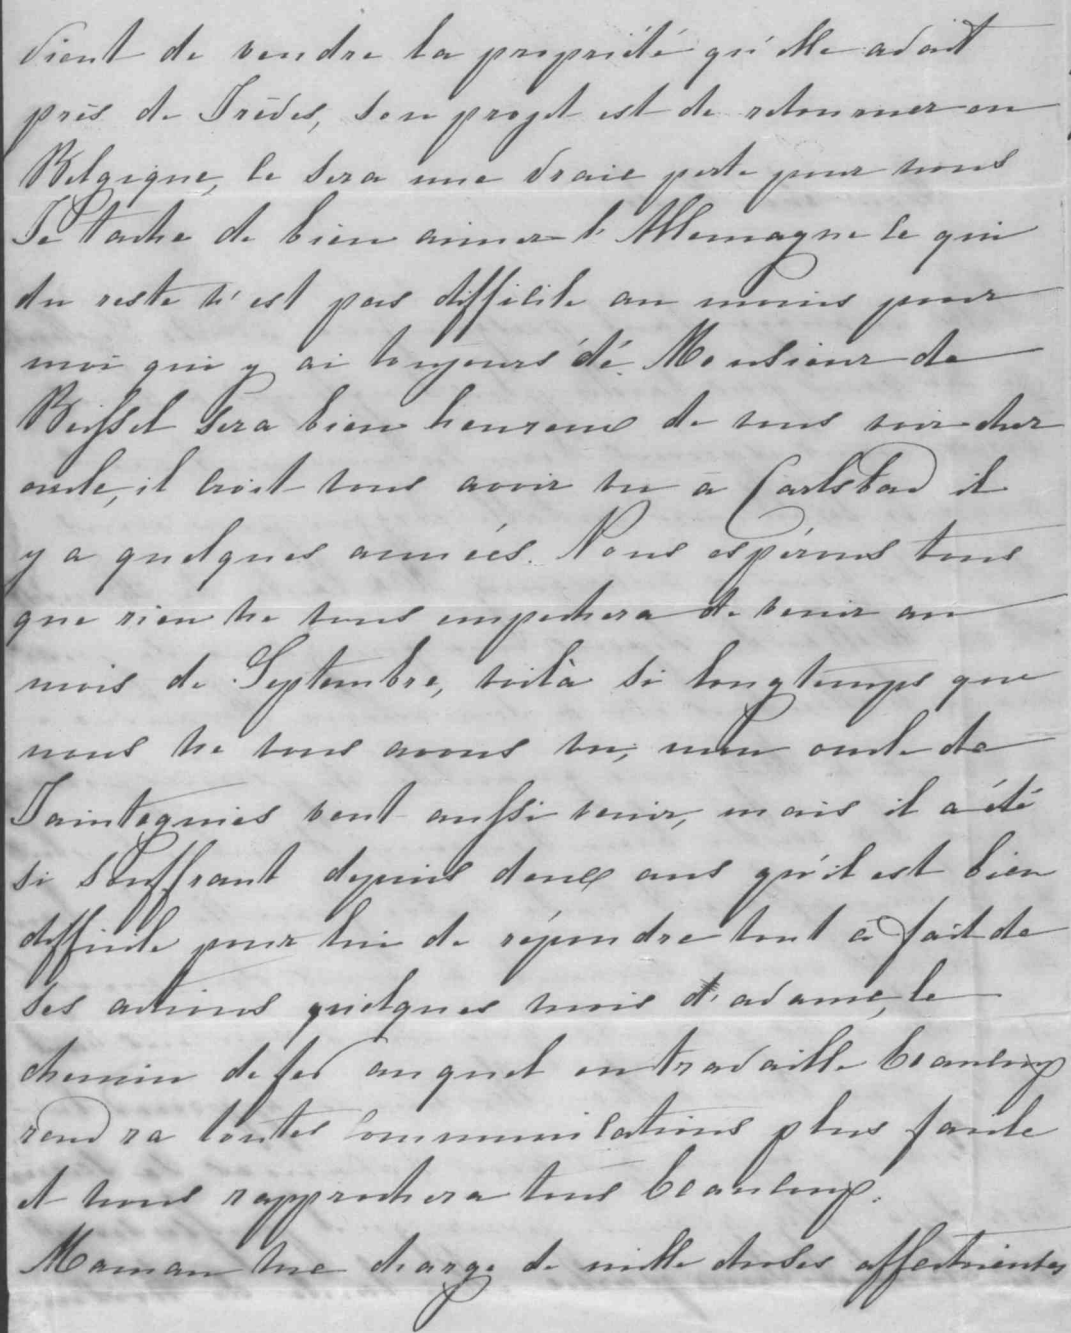 vient de vendre la propriété qu'elle avait
près de Trèves, son projet est de retourner en
Belgique, ce sera une vraie perte pour nous
Je tache de bien aimer l'Allemagne ce qui
du reste n'est pas difficile au moins pour
moi qui y ai toujours été. Monsieur de
Beissel sera bien heureux de vous voir cher
oncle, il croit vous avoir vu à Carlsbad il
y a quelques années. Nous espérons tous
que rien ne vous empechera de venir au
mois de Septembre, voilà si longtemps que
nous ne vous avons vu, mon oncle de
Taintegnies veut aussi venir, mais il a été
si souffrant depuis deux ans qu'il est bien
difficile pour lui de répondre tout à fait de
ses actions quelques mois d'avance, le
chemin de fer auquel on travaille beaucoup
rendra toutes communications plus facile
et nous rapprochera tous beaucoup.
Maman me charge de mille choses affectueuses